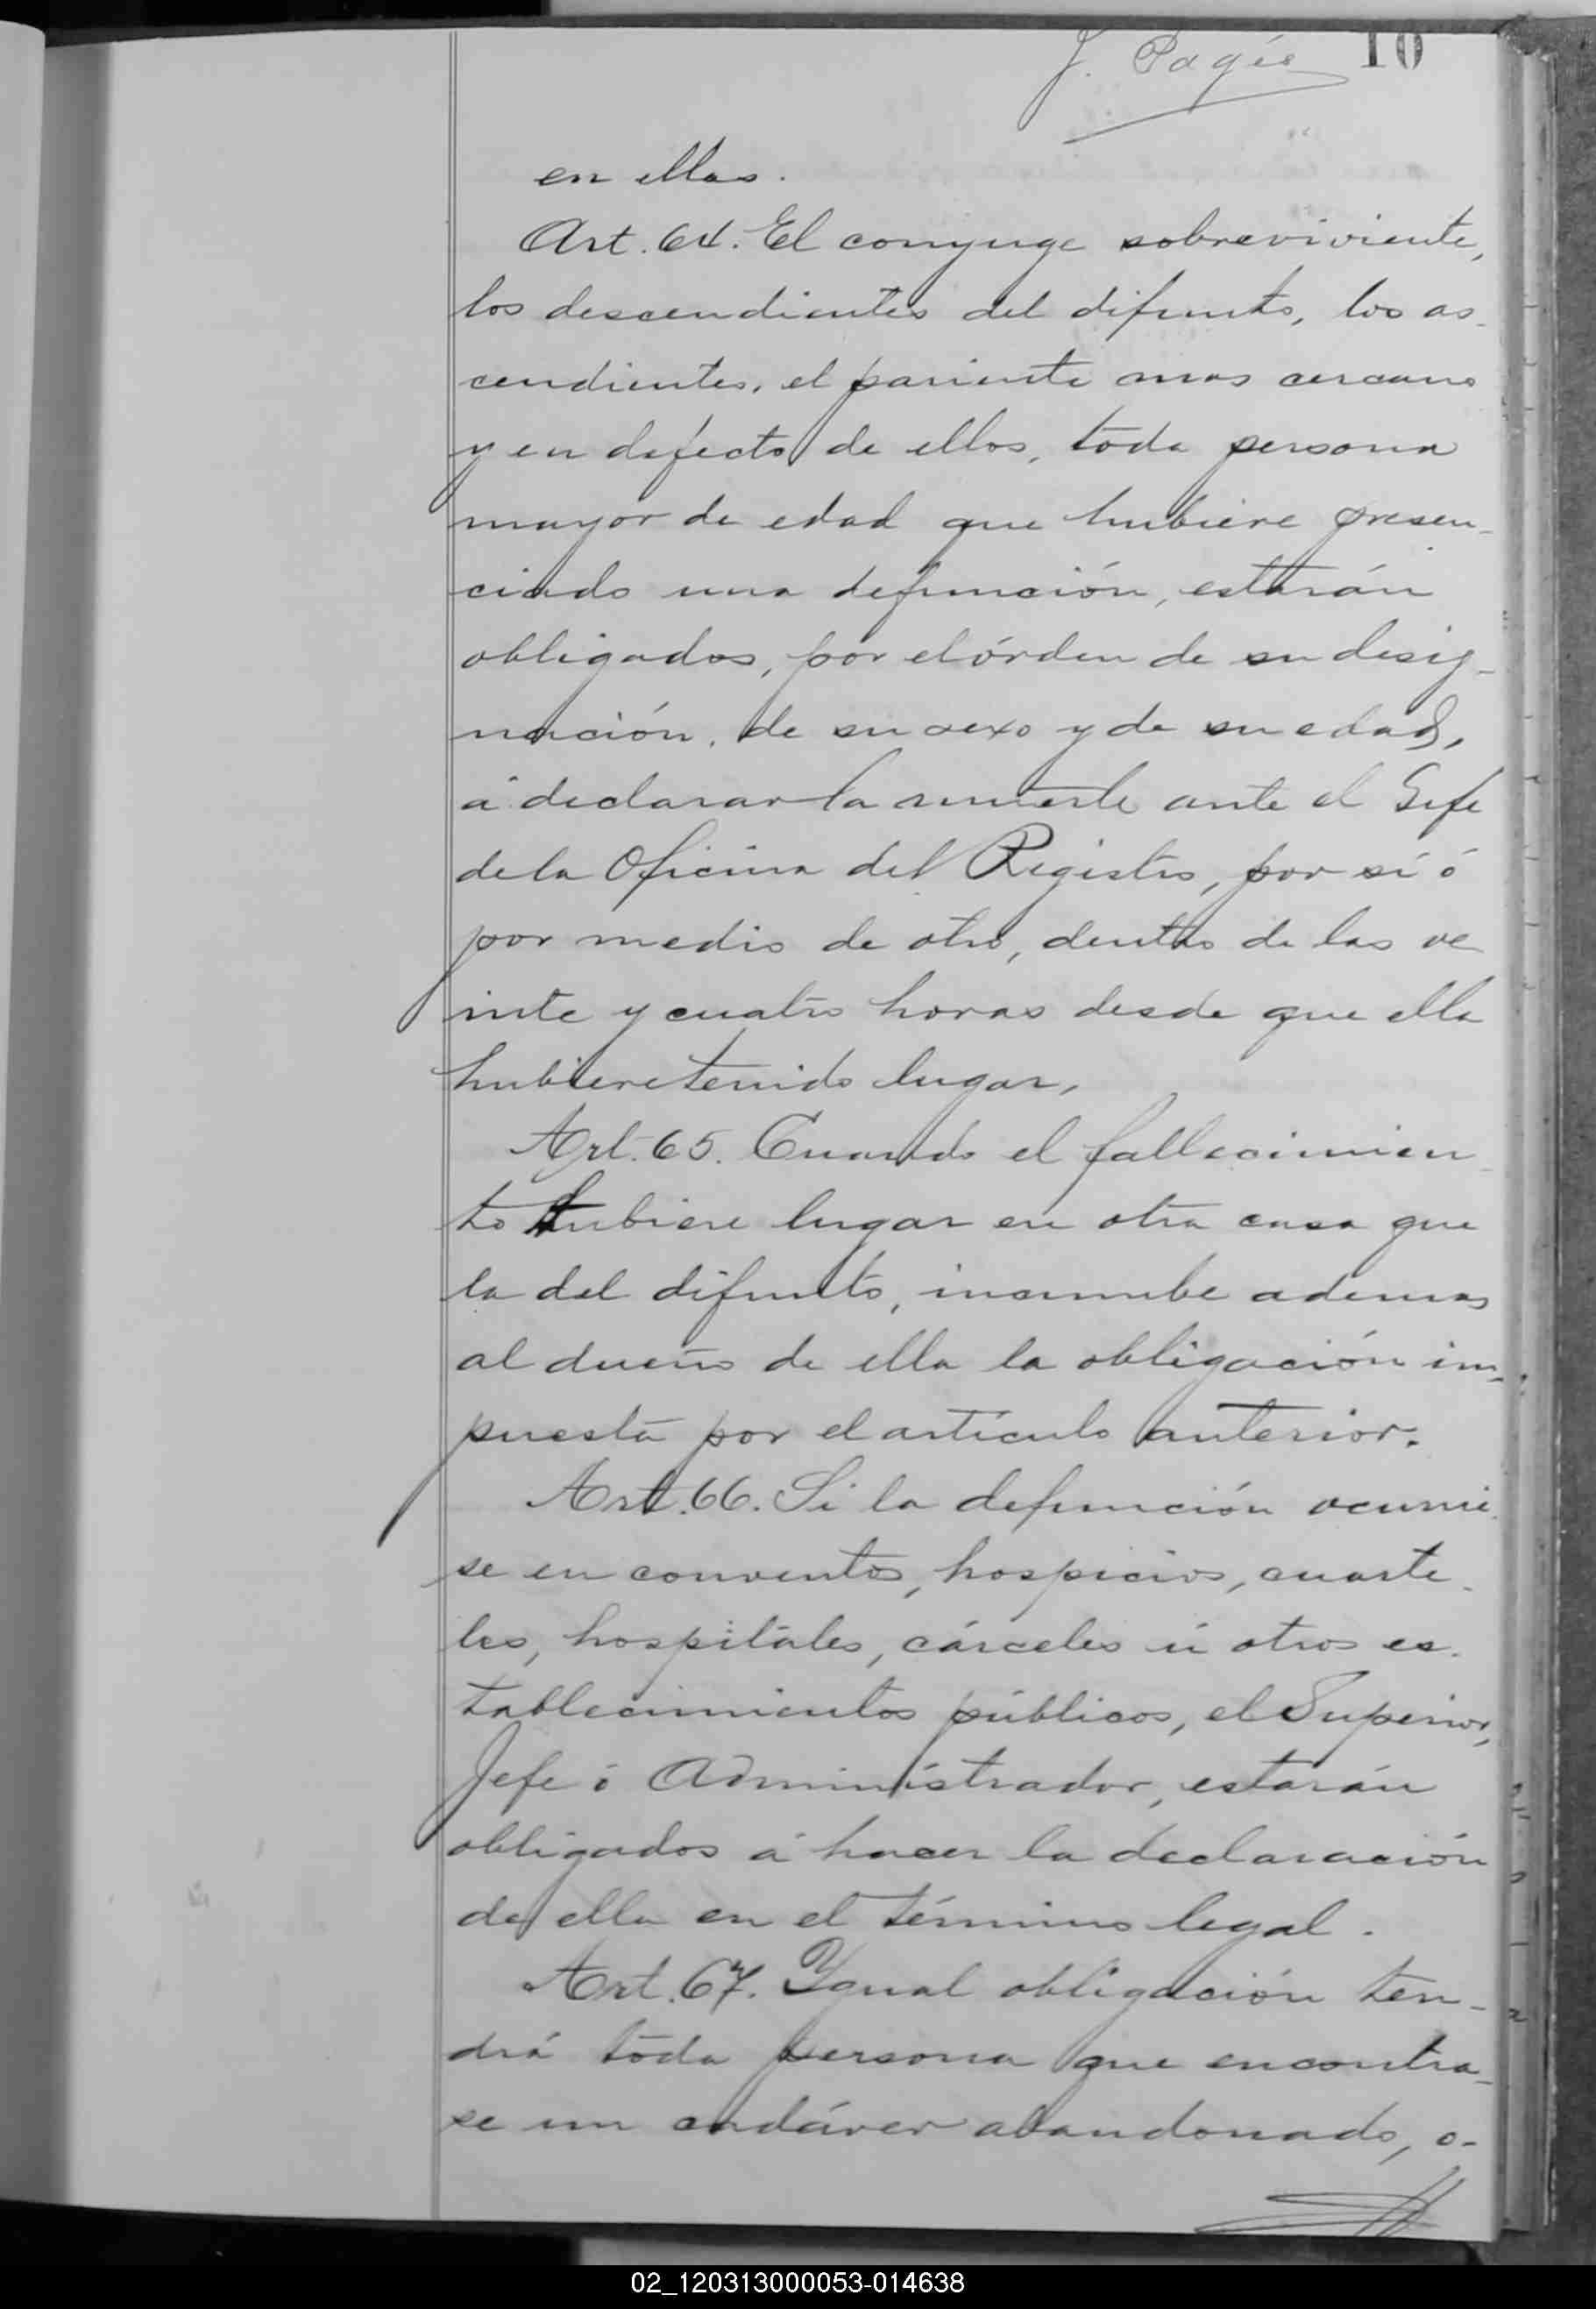 J. Pagés 10
en ellas.
Art. 64. El conyuge sobreviviente,
los descendientes del difunto, los as-
cendientes, el pariente mas cercano
y en defecto de ellos, toda persona
mayor de edad que hubiere presen-
ciado una defunción, estarán
obligados, por el órden de su desig-
nación, de su sexo y de su edad,
á declarar la muerte ante el Gefe
de la Oficina del Registro, por sí ó
por medio de otro, dentro de las ve
inte y cuatro horas desde que ella
hubiere tenido lugar,
Art. 65. Cuando el fallecimien-
to tubiere lugar en otra casa que
la del difunto, incumbe ademas
al dueño de ella la obligación im-
puesta por el artículo anterior.
Art. 66. Si la defunción ocurrie-
se en conventos, hospicios, cuarte-
les, hospitales, cárceles ú otros es-
tablecimientos públicos, el Superior,
Jefe ó Administrador, estarán
obligados á hacer la declaración
de ella en el término legal.
Art. 67. Ygual obligación ten-
drá toda persona que encontra-
se un cadáver abandonado, o-
02_120313000053-014638